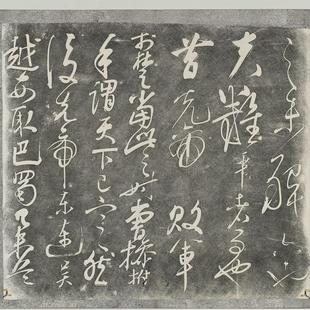 之未解六也
夫難平者事也
昔先帝敗軍
於楚當此之時曹操拊
手謂天下已定然
後先帝東連吳
越西取巴蜀舉兵北